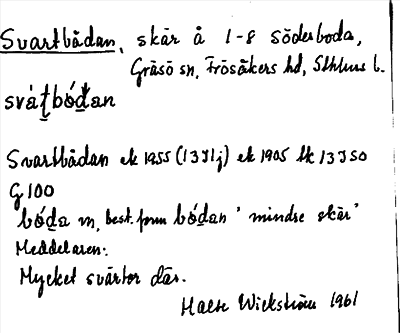 Svartbådan, skär å 1-8 Söderboda,
Gräsö sn, Frösåkers hd, Sthlms l.
svát̯bóḏan
Svartbådan ek 1955 (13I1j) ek 1905 tk 13J50
G100
bóḏa m, best. form bóḏan 'mindre skär'
Meddelaren:
Mycket svårtor där.
Wickström 1961